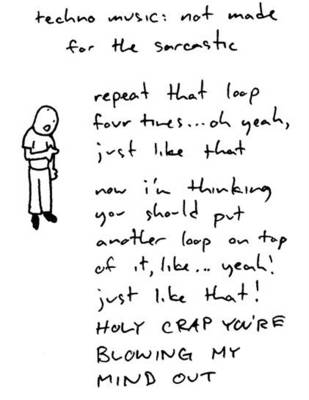 techno music: not made
for the sarcastic
repeat that loop
four times...oh yeah,
just like that
now i'm thinking
you should put
another loop on top
of it, like... yeah!
just like that!
HOLY CRAP YOU'RE
BLOWING MY
MIND OUT